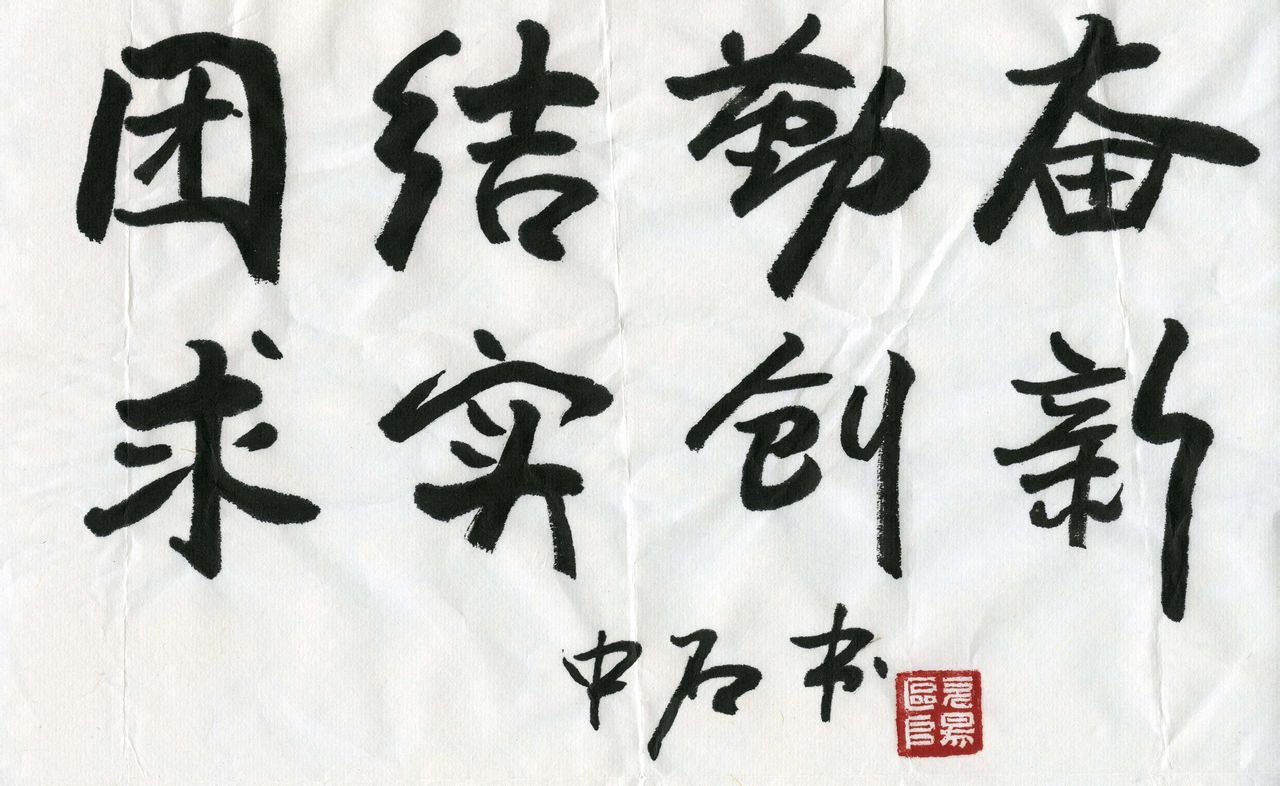 团结勤奋
求实创新
中石书